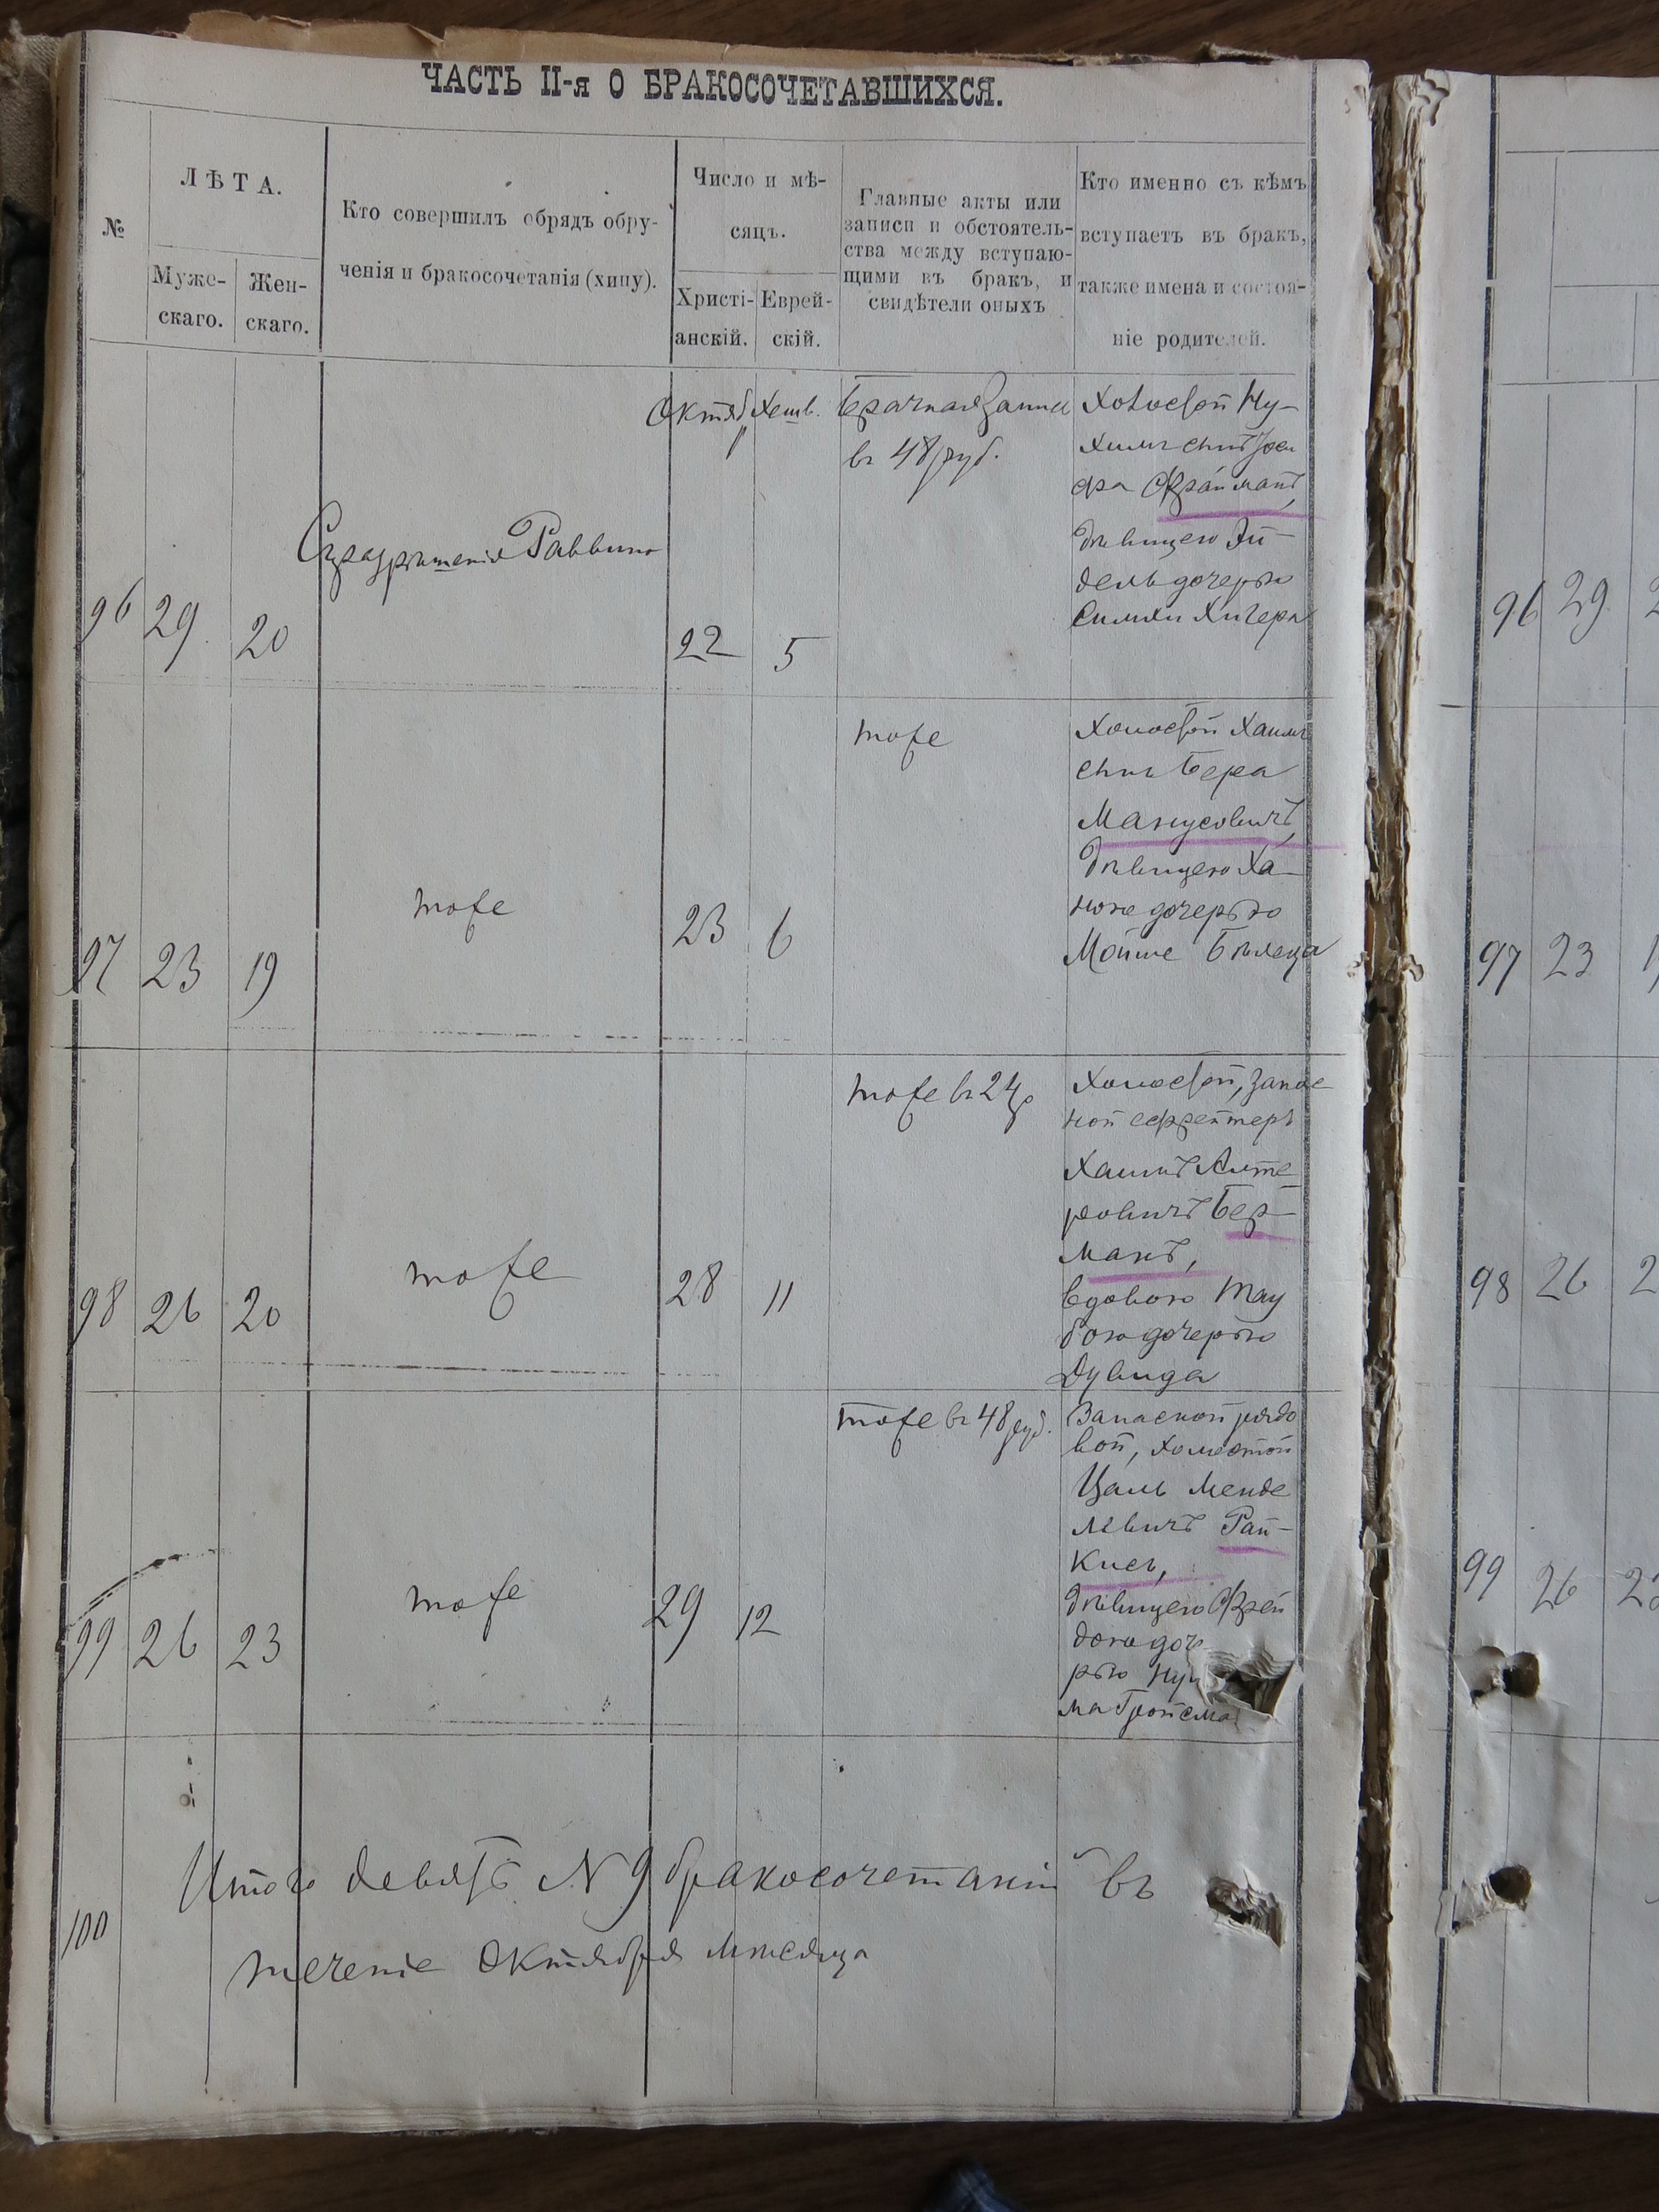 ЧАСТЬ II-я О БРАКОСОЧЕТАВШИХСЯ.
№
ЛѢТА.
Муже-
скаго.
Жен-
скаго.
Кто совершилъ обрядъ обру-
ченія и бракосочетанія (хипу).
Число и мѣ-
сяцъ.
Христі-
анскій.
Еврей-
скій.
Главные акты или
записи и обстоятель-
ства между вступаю-
щими въ бракъ, и
свидѣтели оныхъ
Кто именно съ кѣмъ
вступаетъ въ бракъ,
также имена и состоя-
ніе родителей.
96 29 20
Съ разрѣшенія Раввина
Октяб. Хешв.
22 5
Брачная запись
въ 48 руб.
Холостой Ну-
химъ сынъ Іос
фа Фрайманъ,
дѣвицею Эй-
дель дочерью
Симхи Хигера
97 23 19
тоже
23 6
тоже
Холостой Хаимъ
сынъ Бера
Манусовичъ,
дѣвицею Ха-
ною дочерью
Мойше
98 26 20
тоже
28 11
тоже въ 24 р
Холостой, запас
ной ефрейторъ
Хаимъ Альте
ровичъ Бер-
манъ,
вдовою Тау
бою дочерью
Дувида
99 26 23
тоже
29 12
тоже въ 48 руб.
Запасной рядо
вой, холостой
Цаль Менде
левичъ Рай-
кисъ,
дѣвицею Фрей
дою доч
рью Ну
ма Гройсма
100
Итого девять N 9 бракосочетаній въ
теченіе Октября мѣсяца
96 29
97 23
98 26 2
99 26 2